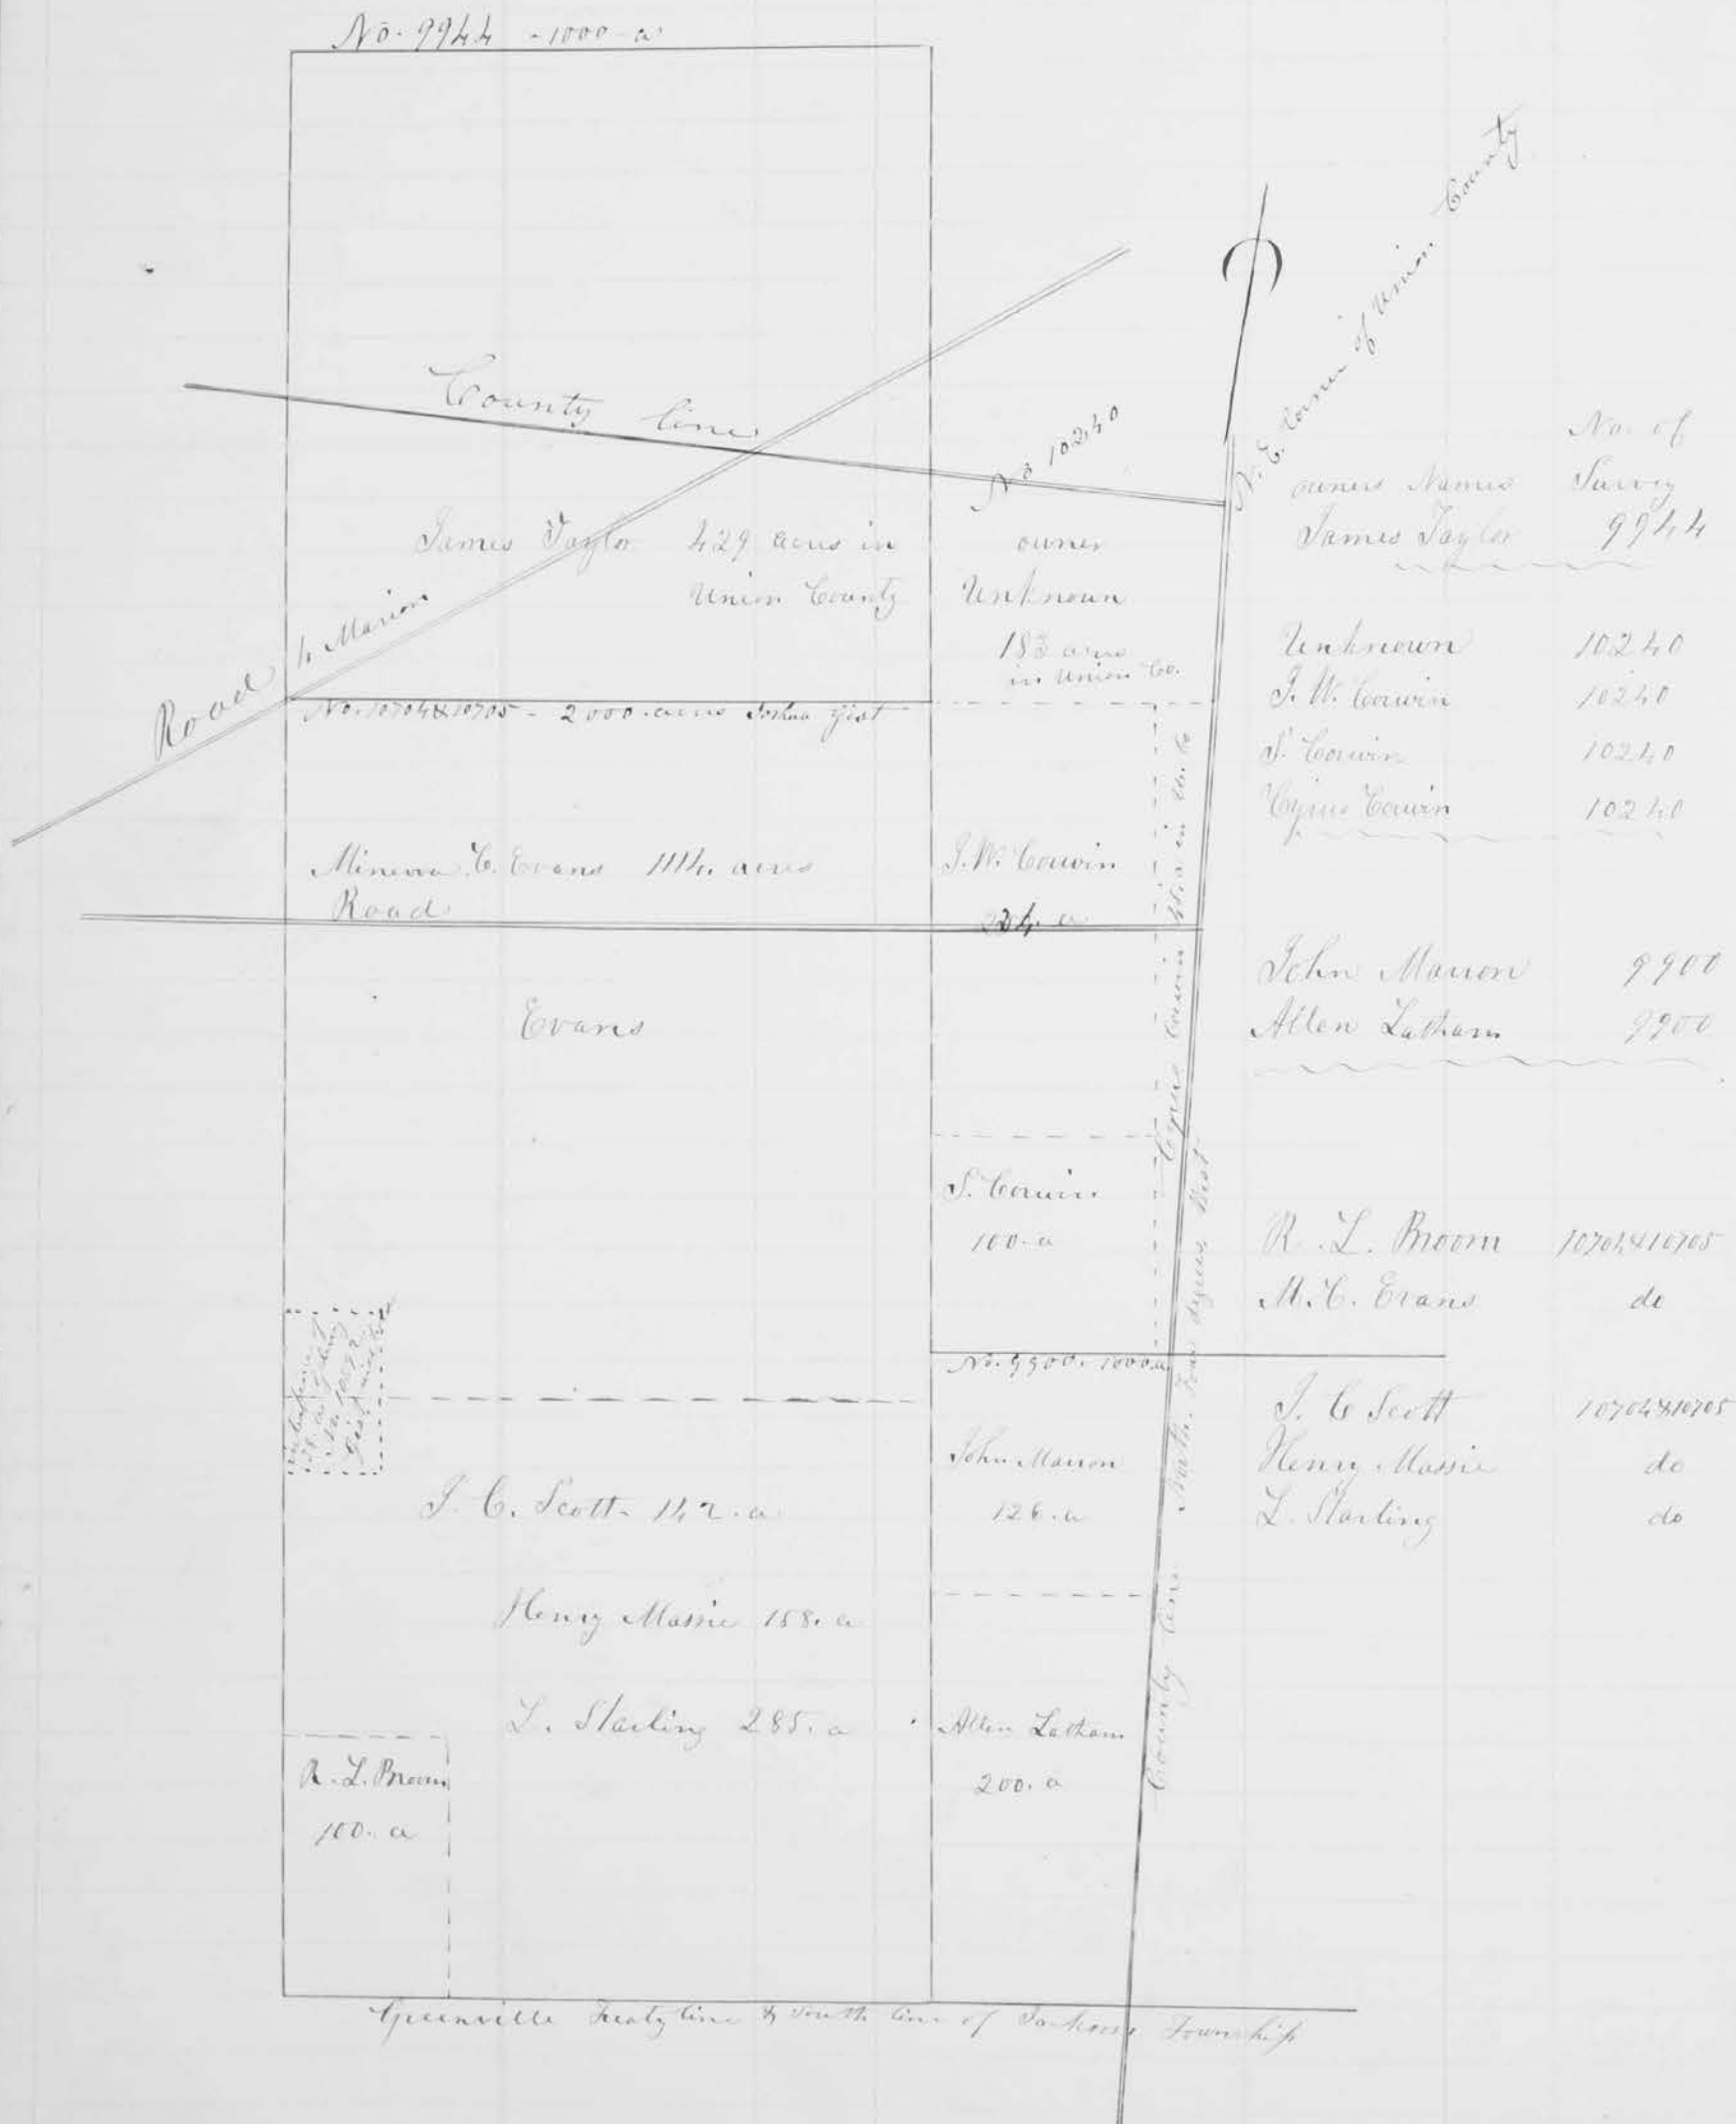 No. 9944 - 1000 - a
N. E. Corner of Union County
County line
No 10240
James Taylor 429 acres in
Union County
owner
Unknown
183 acres
in Union Co.
Road to Marion
No. 10704 & 10705 - 2000 acres Joshua Gist
Minerva C. Evans 1114. acres
Road
J. W. Corwin
224. a
Cyrus Corwin 45. a in Un. Co
Evans
S. Corwin
100 - a
No. 9900. 1000. a
County line North. Four degrees, West
10572
Gist
J. C. Scott - 142. a
John Marion
126. a
Henry Massie 158. a
L. Starling 285. a
Allen Latham
200. a
R. L. Broom
100. a
Greenville Treaty line & South line of Jackson Township
No. of
owners Names Survey
James Taylor 9944
Unknown 10240
J. W. Corwin 10240
S. Corwin 10240
Cyrus Corwin 10240
John Marion 9900
Allen Latham 9900
R. L. Broom 10704 & 10705
M. C. Evans do
J. C Scott 10704 & 10705
Henry Massie do
L. Starling do